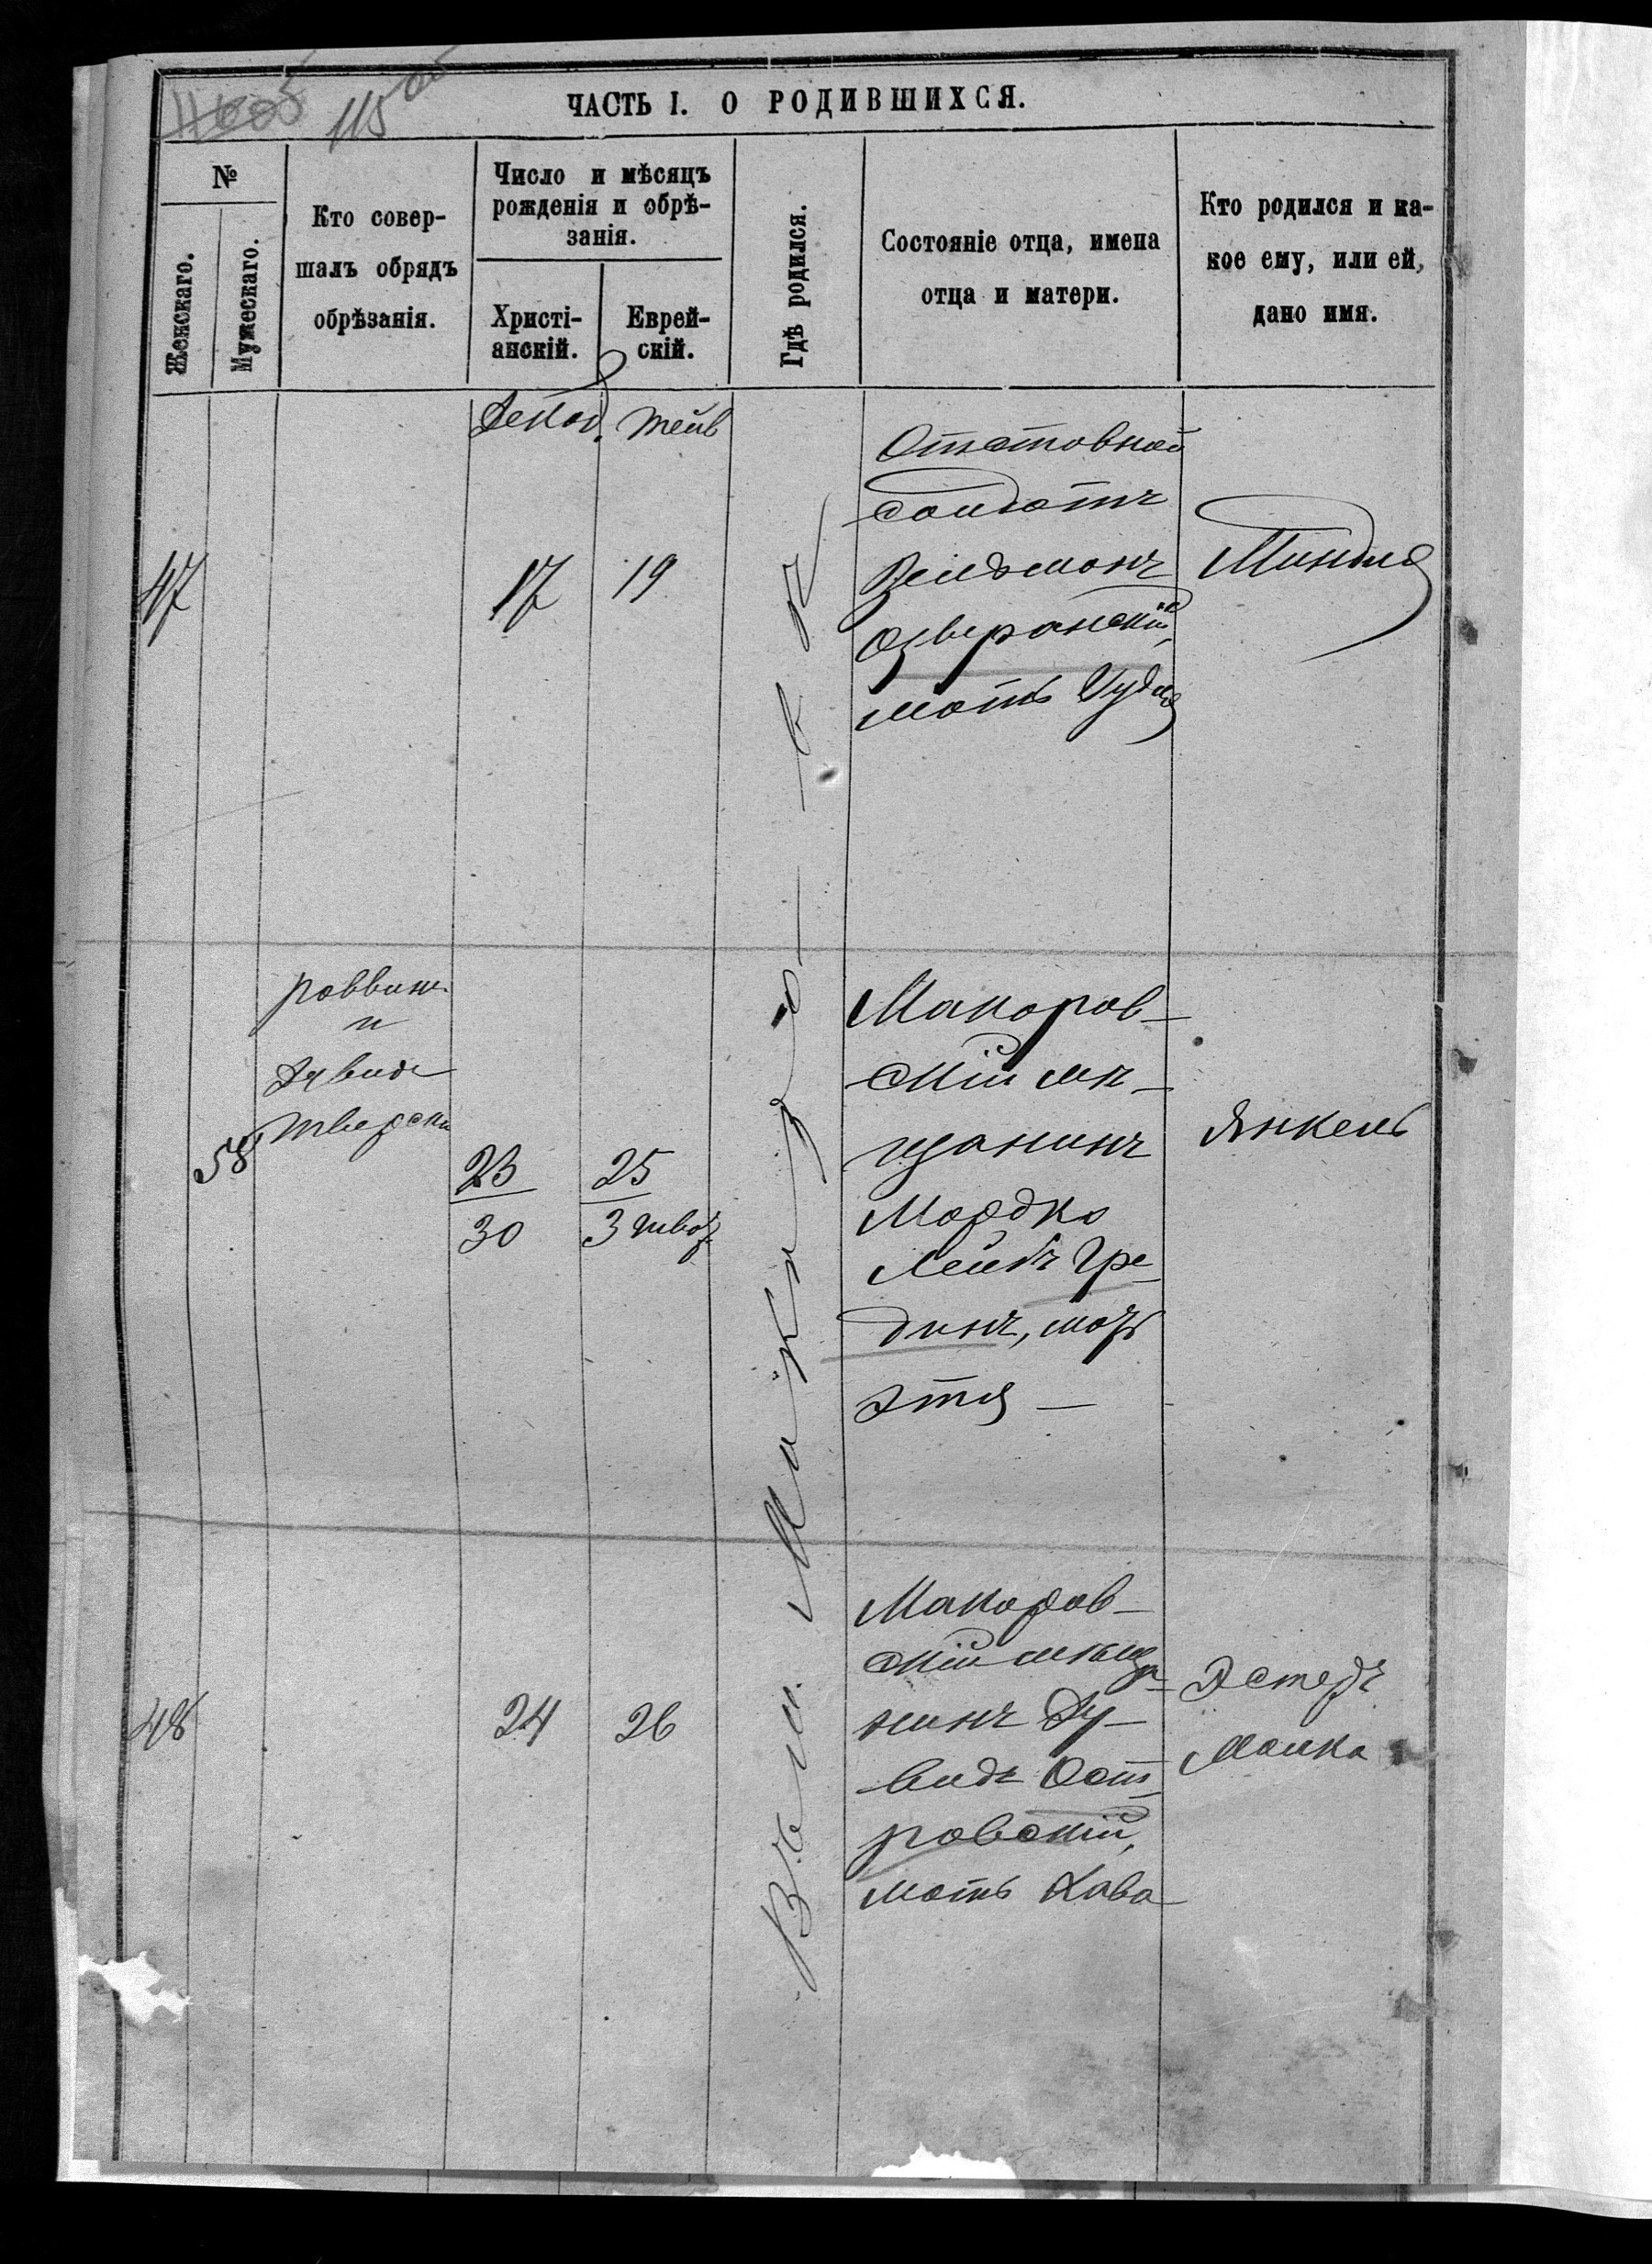 115 об
ЧАСТЬ I. О РОДИВШИХСЯ.
№
Женскаго.
Мужескаго.
Кто совер-
шалъ обрядъ
обрѣзанія.
Число и мѣсяцъ
рожденія и обрѣ-
занія.
Христі-
анскій.
Еврей-
скій.
Гдѣ родился.
Состояніе отца, имена
отца и матери.
Кто родился и ка-
кое ему, или ей,
дано имя.
Декаб. тейв
47
17
19
Отставной
солдатъ
Зельманъ
Озверанскій,
мать Худя
Миндля
58
раввин.
и
Дувидъ
Тверски
23
30
25
3 швот
Макаров-
скій мѣ-
щанинъ
Мордко
Лейбъ Гре-
динъ, мать
Этя
Янкель
48
24
26
Макаров-
скій мѣща-
нинъ Ду-
видъ Ост-
ровскій,
мать Хава
Эстеръ
Малка
Въ м.